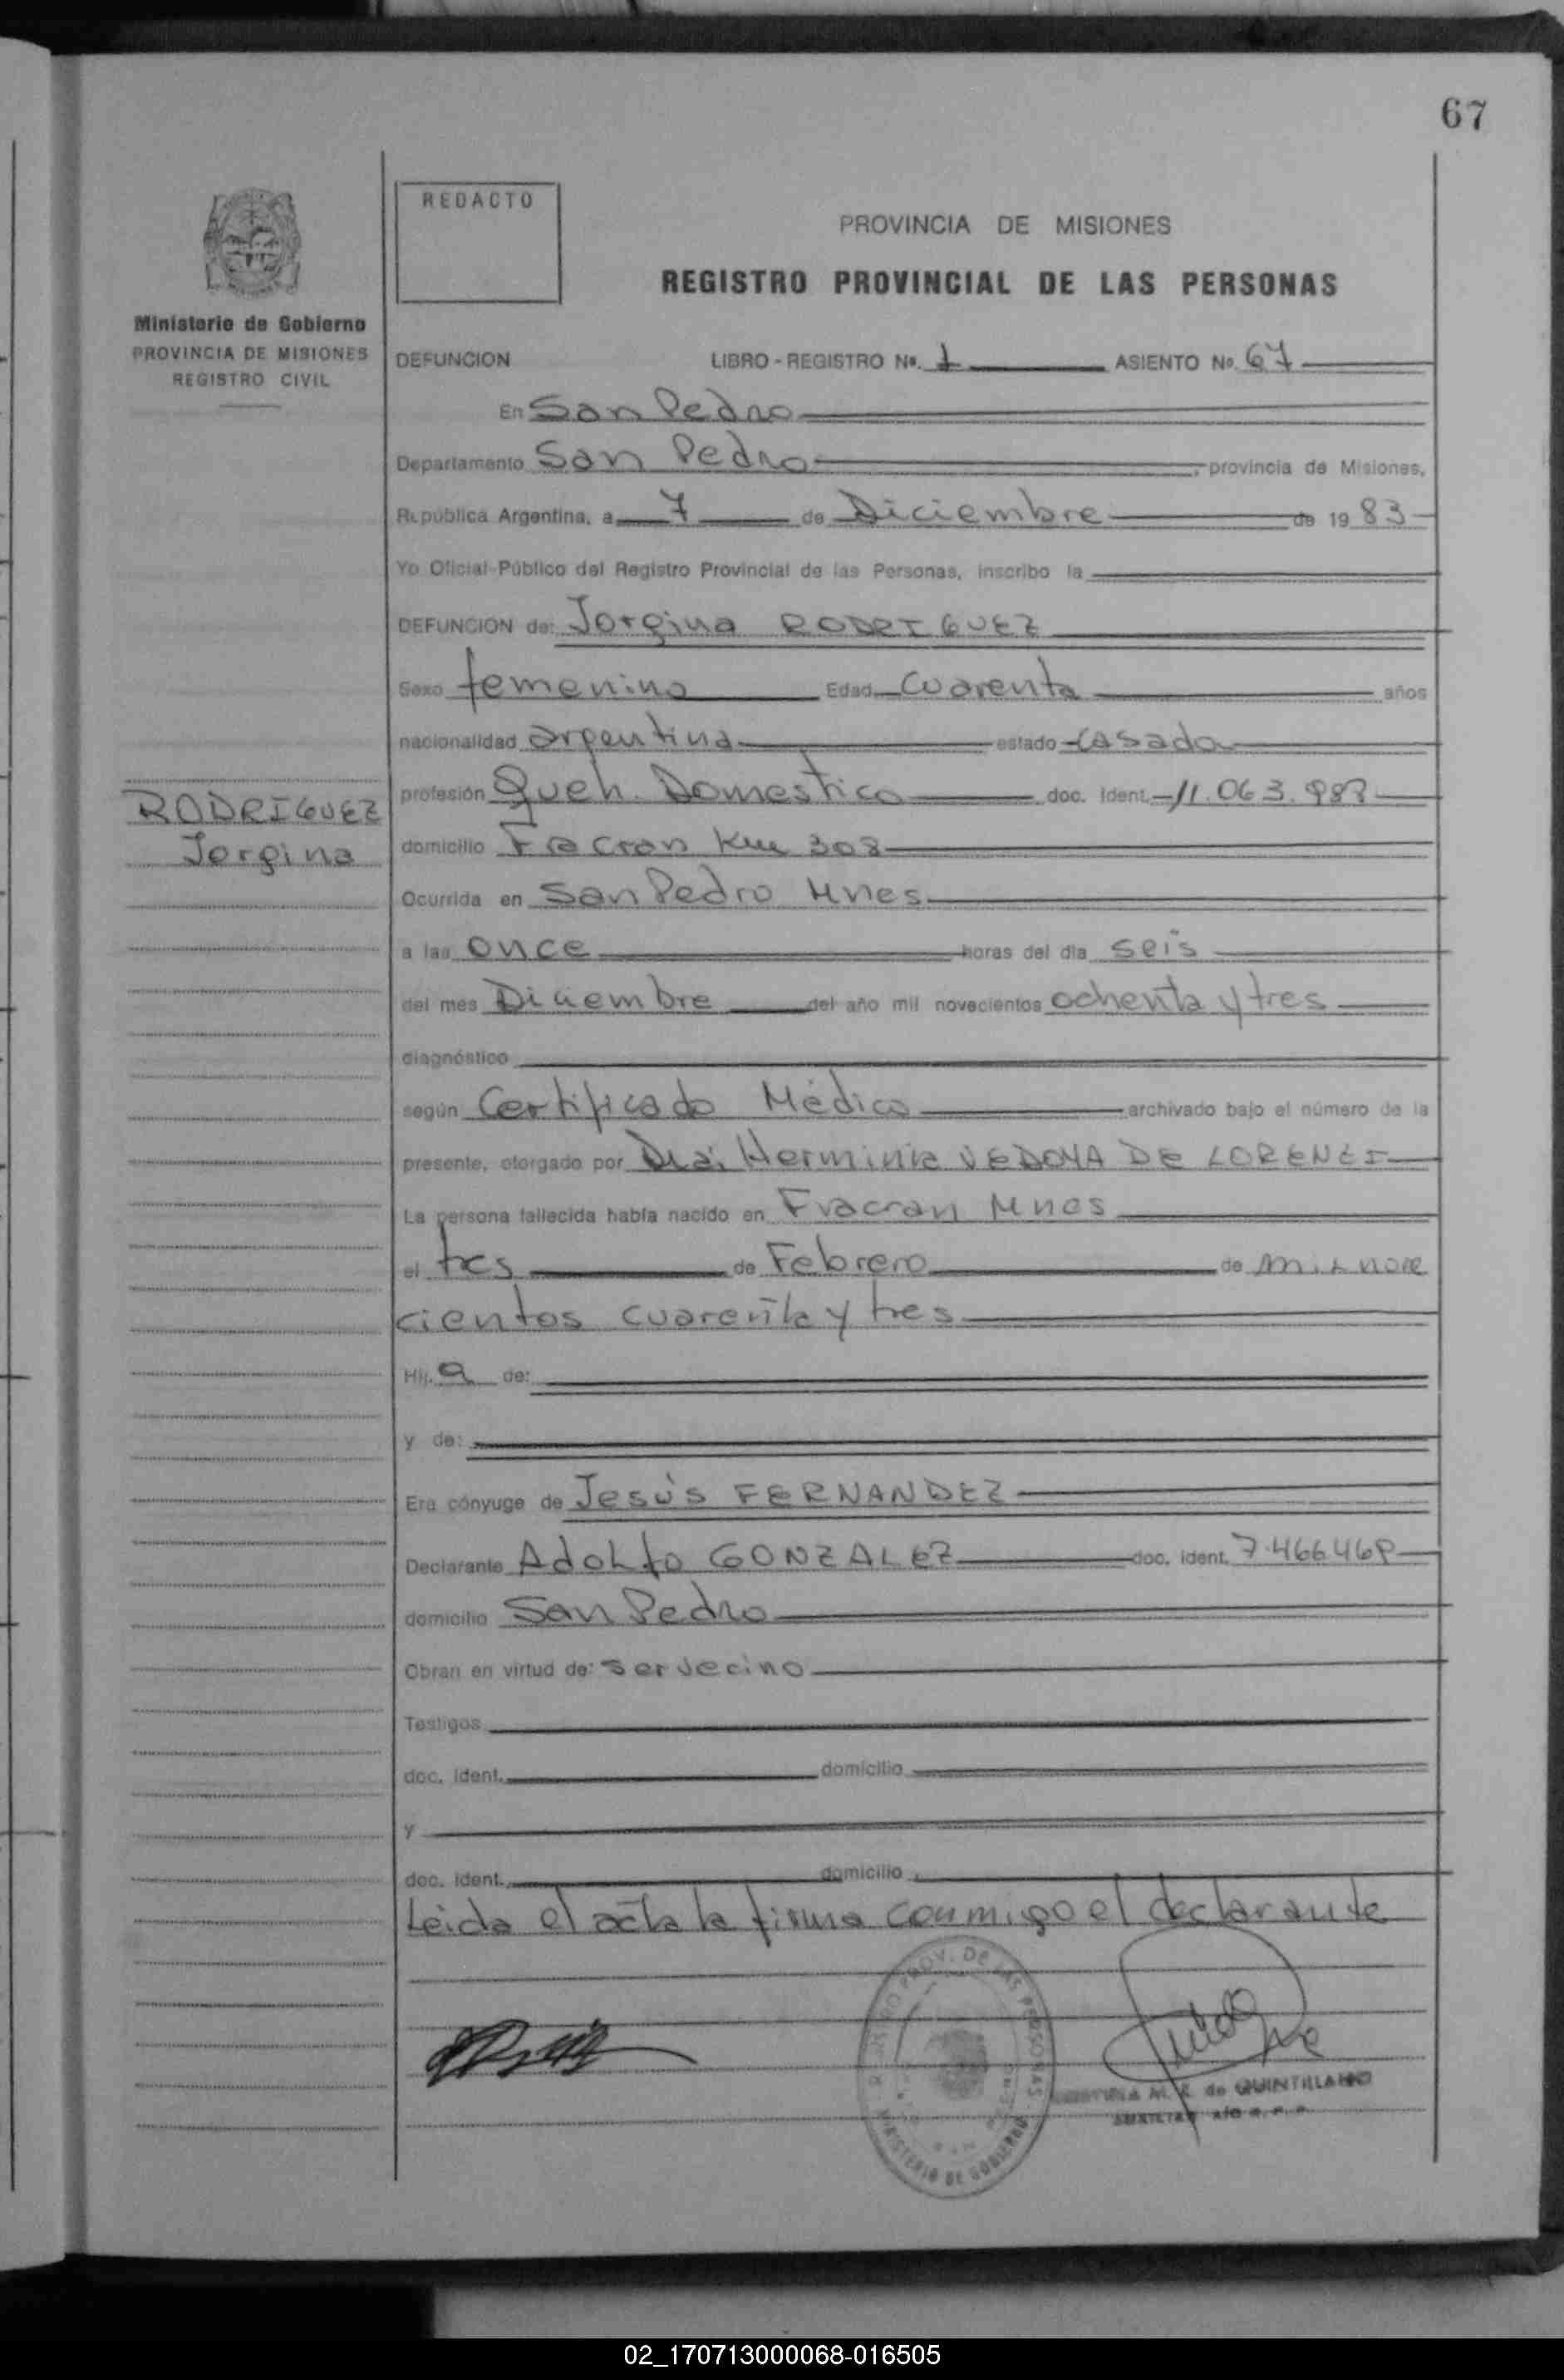 67
REDACTO
PROVINCIA DE MISIONES
REGISTRO PROVINCIAL DE LAS PERSONAS
Ministerio de Gobierno
PROVINCIA DE MISIONES
REGISTRO CIVIL
DEFUNCION LIBRO - REGISTRO No. 1 ASIENTO No. 67
En San Pedro
Departamento San Pedro, provincia de Misiones,
República Argentina, a 7 de Diciembre de 1983
Yo Oficial Público del Registro Provincial de las Personas, inscribo la
DEFUNCION de: Jorgina RODRIGUEZ
Sexo femenino Edad Cuarenta años
nacionalidad argentina estado casada
profesión Queh. Domestico doc. Ident. 11.063.987
RODRIGUEZ
Jorgina
domicilio Fracran Km 308
Ocurrida en San Pedro Mnes
a las once horas del día seis
del mes Diciembre del año mil novecientos ochenta y tres
diagnóstico
según Certificado Médico archivado bajo el número de la
presente, otorgado por Dra. Herminia VEDOYA DE LORENZI
La persona fallecida había nacido en Fracran Mnes
el tres de Febrero de mil nove
cientos cuarenta y tres
Hij a de:
y de:
Era cónyuge de Jesús FERNANDEZ
Declarante Adolfo GONZALEZ doc. Ident. 7.466.468
domicilio San Pedro
Obran en virtud de: ser vecino
Testigos
doc. Ident. domicilio
y
doc. Ident. domicilio
Leida el acta la firma conmigo el declarante
REGISTRO PROV. DE LAS PERSONAS
MINISTERIO DE GOBIERNO
M. R. de QUINTILLANO
AUXILIAR
02_170713000068-016505